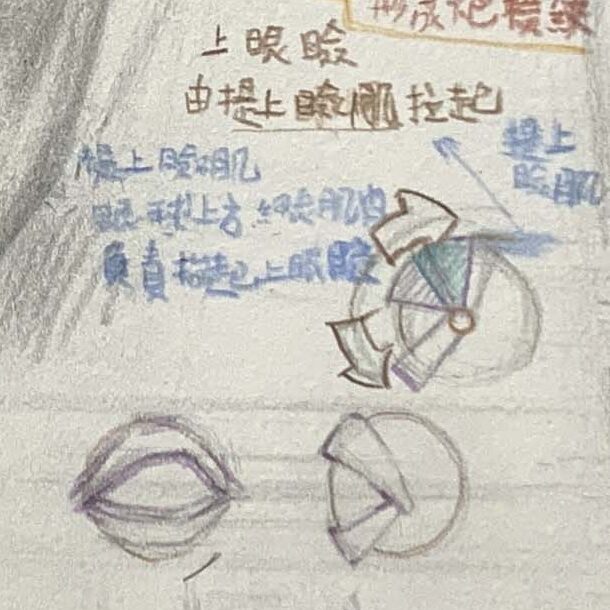 形成抱慶緣
上眼瞼
由提上瞼肌拉起
提上
瞼肌
提上瞼肌
眼球上方 細長肌肉
負責抬起上眼瞼